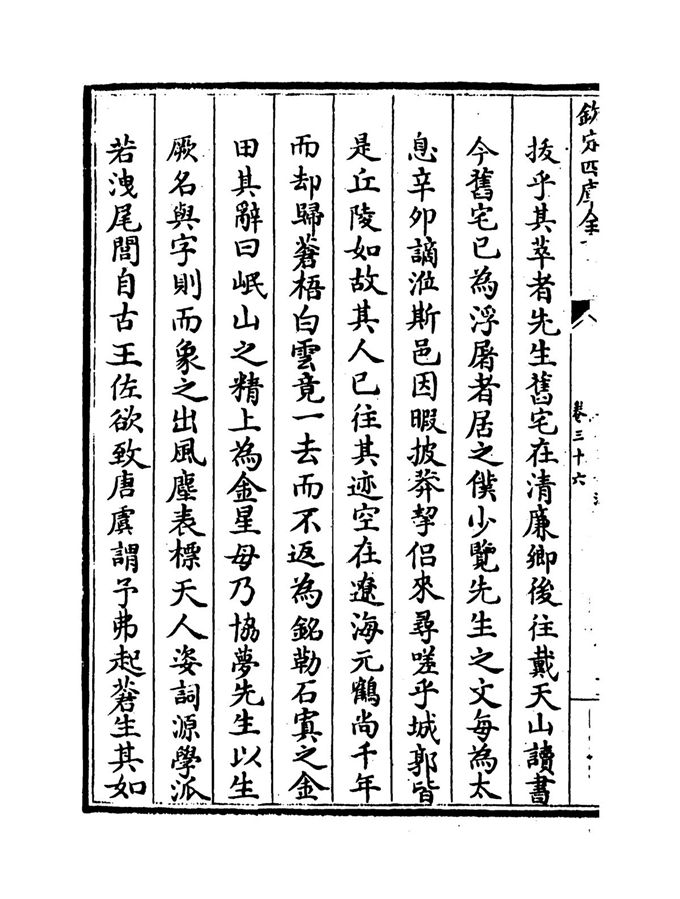 欽定四庫全
卷三十六
拔乎其萃者先生舊宅在清廉鄉後往戴天山讀書
今舊宅已為浮屠者居之僕少覽先生之文每為太
息辛卯謫涖斯邑因暇披莽挈侶來尋嗟乎城郭皆
是丘陵如故其人已往其迹空在遼海元鶴尚千年
而却歸蒼梧白雲竟一去而不返為銘勒石寘之金
田其辭曰岷山之精上為金星母乃協夢先生以生
厥名與字則而象之出風塵表標天人姿詞源學派
若洩尾閭自古王佐欲致唐虞謂予弗起蒼生其如